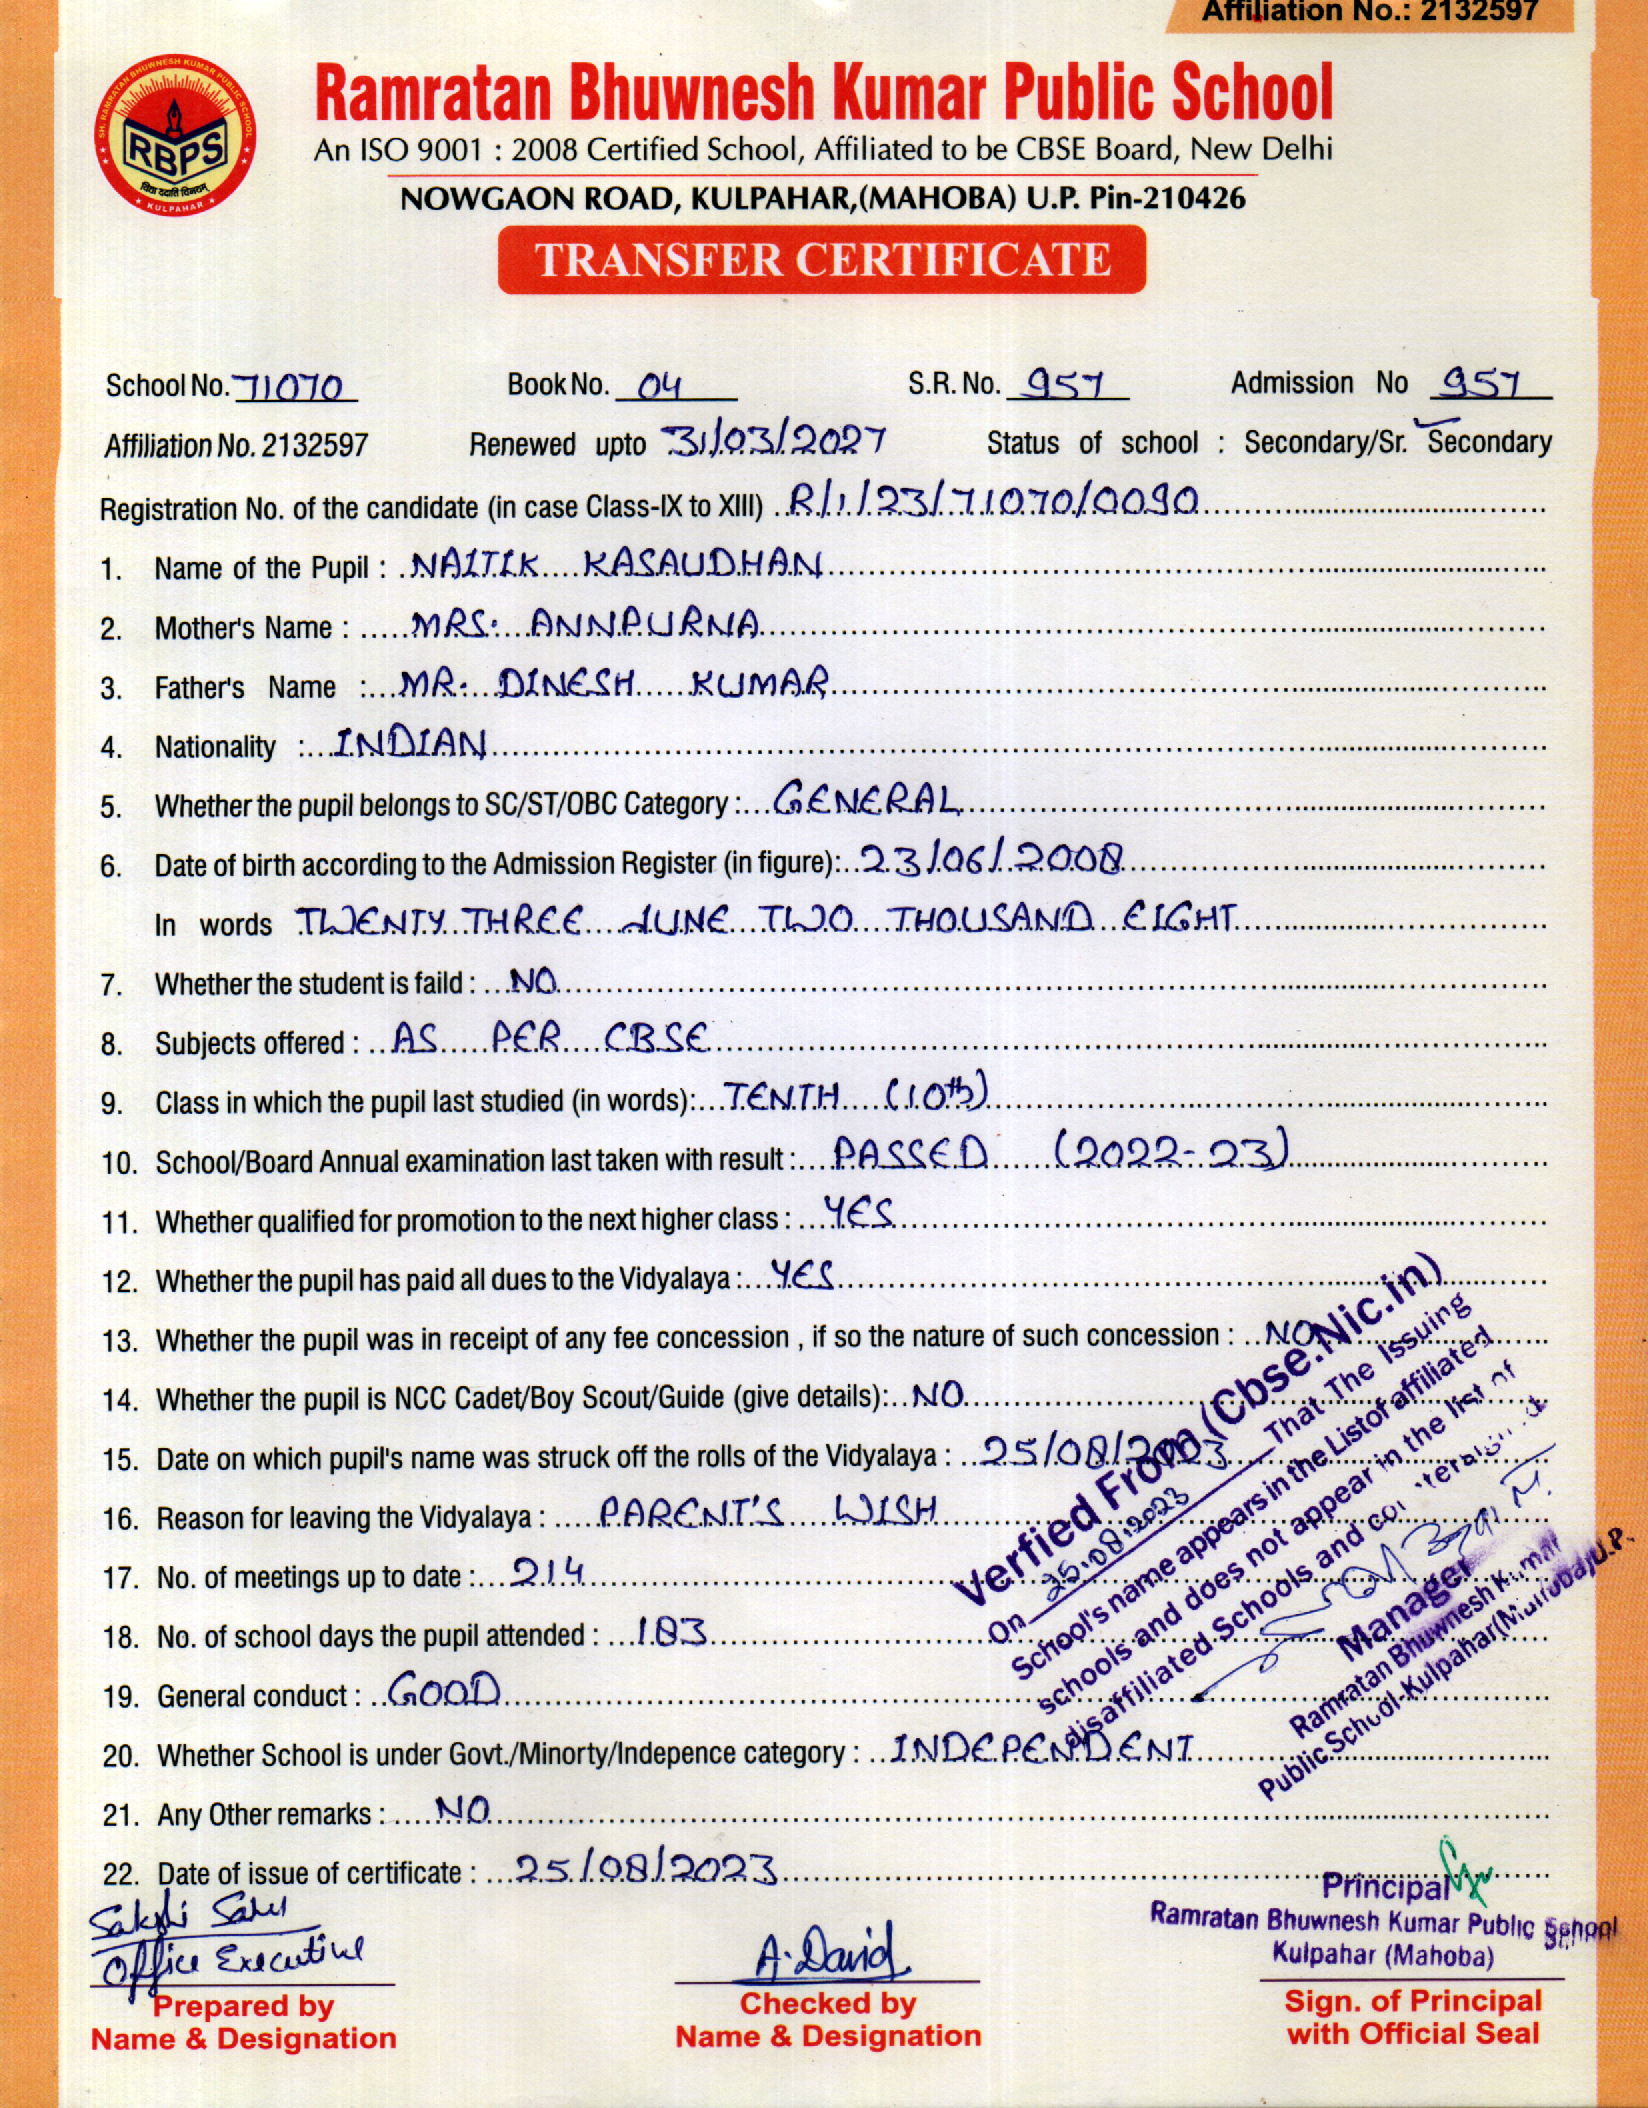 Affiliation No.: 2132597
SH. RAMRATAN BHUWNESH KUMAR PUBLIC SCHOOL
RBPS
विद्या ददाति विनयम्
KULPAHAR
Ramratan Bhuwnesh Kumar Public School
An ISO 9001 : 2008 Certified School, Affiliated to be CBSE Board, New Delhi
NOWGAON ROAD, KULPAHAR,(MAHOBA) U.P. Pin-210426
TRANSFER CERTIFICATE
School No. 71070 Book No. 04 S.R. No. 957 Admission No 957
Affiliation No. 2132597 Renewed upto 31/03/2027 Status of school : Secondary/Sr. Secondary
Registration No. of the candidate (in case Class-IX to XIII) R/1/23/71070/0090
1. Name of the Pupil : NAITIK KASAUDHAN
2. Mother's Name : MRS. ANNPURNA
3. Father's Name : MR. DINESH KUMAR
4. Nationality : INDIAN
5. Whether the pupil belongs to SC/ST/OBC Category : GENERAL
6. Date of birth according to the Admission Register (in figure): 23/06/2008
In words TWENTY THREE JUNE TWO THOUSAND EIGHT
7. Whether the student is faild : NO
8. Subjects offered : AS PER CBSE
9. Class in which the pupil last studied (in words): TENTH (10th)
10. School/Board Annual examination last taken with result : PASSED (2022-23)
11. Whether qualified for promotion to the next higher class : YES
12. Whether the pupil has paid all dues to the Vidyalaya : YES
13. Whether the pupil was in receipt of any fee concession , if so the nature of such concession : NO
14. Whether the pupil is NCC Cadet/Boy Scout/Guide (give details): NO
15. Date on which pupil's name was struck off the rolls of the Vidyalaya : 25/08/2023
16. Reason for leaving the Vidyalaya : PARENT'S WISH
17. No. of meetings up to date : 214
18. No. of school days the pupil attended : 183
19. General conduct : GOOD
20. Whether School is under Govt./Minorty/Indepence category : INDEPENDENT
21. Any Other remarks : NO
22. Date of issue of certificate : 25/08/2023
Verfied From (Cbse.Nic.in)
On 25.08.2023 That The Issuing
School's name appears in the List of affiliated
schools and does not appear in the list of
disaffiliated Schools and
Manager
Ramratan Bhuwnesh Kumar
Public School-Kulpahar(Mahoba)U.P.
Sakshi Sahu
Office Executive
Prepared by
Name & Designation
A. David
Checked by
Name & Designation
Principal
Ramratan Bhuwnesh Kumar Public School
Kulpahar (Mahoba)
Sign. of Principal
with Official Seal